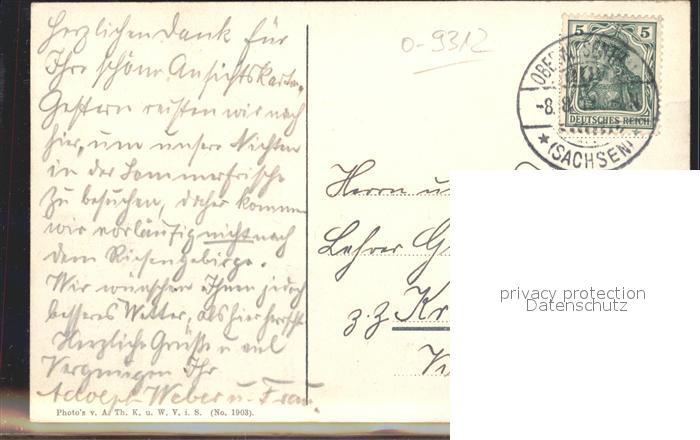 Herzlichen Dank für
Ihre schöne Ansichtskarte.
Gestern reisten wir nach
hier, um unsere Nichten
in der Sommerfrische
zu besuchen, daher kommen
wir vorläufig nicht nach
dem Riesengebirge.
Wir wünschen Ihnen jedoch
besseres Wetter, als hier herrscht.
Herzliche Grüsse u. viel
Vergnügen Ihr
Adolph Weber u. Frau.
Photo's v. A. Th. K. u. W. V. i. S. (No. 1903).
0-9312
5 5
DEUTSCHES REICH
-8. 8.
* (SACHSEN) *
Herrn u
Lehrer
z. Z. Kr
privacy protection
Datenschutz